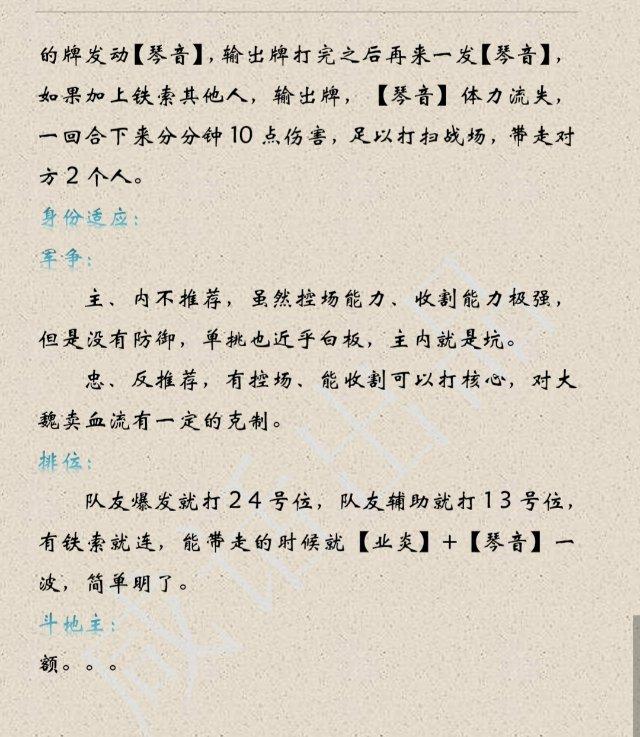 的牌发动【琴音】，输出牌打完之后再来一发【琴音】，
如果加上铁索其他人，输出牌，【琴音】体力流失，
一回合下来分分钟10点伤害，足以打扫战场，带走对
方2个人。
身份适应：
军争：
主、内不推荐，虽然控场能力、收割能力极强，
但是没有防御，单挑也近乎白板，主内就是坑。
忠、反推荐，有控场、能收割可以打核心，对大
魏卖血流有一定的克制。
排位：
队友爆发就打24号位，队友辅助就打13号位，
有铁索就连，能带走的时候就【业炎】+【琴音】一
波，简单明了。
斗地主：
额。。。